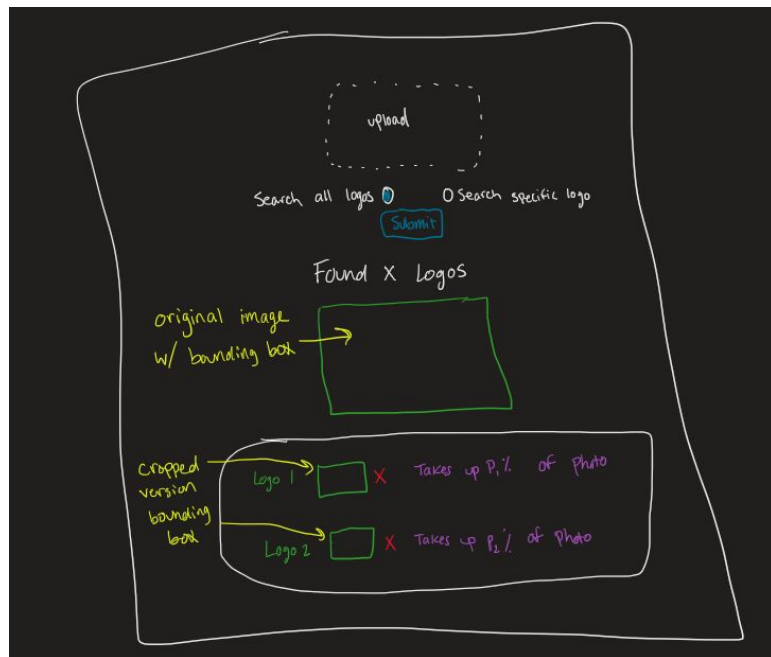 upload
Search all logos
Search specific logo
Submit
Found X Logos
original image
w/ bounding box
cropped
version
bounding
box
Logo 1 X Takes up P₁% of Photo
Logo 2 X Takes up P₂% of Photo